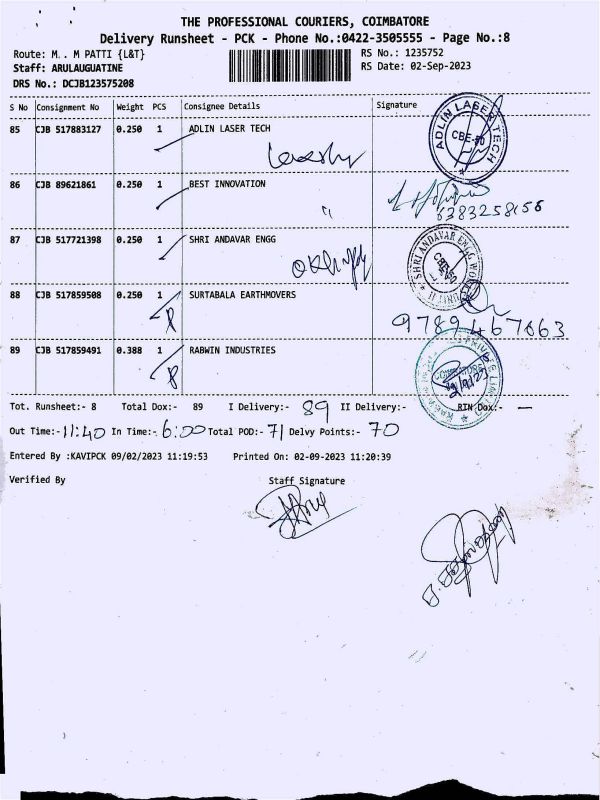 THE PROFESSIONAL COURIERS, COIMBATORE
Delivery Runsheet - PCK - Phone No.:0422-3505555 - Page No.:8
Route: M.. M PATTI {L&T}
RS No.: 1235752
Staff: ARULAUGUATINE
RS Date: 02-Sep-2023
DRS No.: DCJB123575208
S No Consignment No Weight PCS Consignee Details Signature
85 CJB 517883127 0.250 1 ADLIN LASER TECH
ADLIN LASER TECH
CBE-
86 CJB 89621861 0.250 1 BEST INNOVATION
6383258156
87 CJB 517721398 0.250 1 SHRI ANDAVAR ENGG
SHRI ANDAVAR ENGG
88 CJB 517859508 0.250 1 SURTABALA EARTHMOVERS
9789467663
89 CJB 517859491 0.388 1 RABWIN INDUSTRIES
Tot. Runsheet:- 8 Total Dox:- 89 I Delivery:- 89 II Delivery:- RTN Dox:- —
Out Time:- 11:40 In Time:- 6:00 Total POD:- 71 Delvy Points:- 70
Entered By :KAVIPCK 09/02/2023 11:19:53 Printed On: 02-09-2023 11:20:39
Verified By Staff Signature